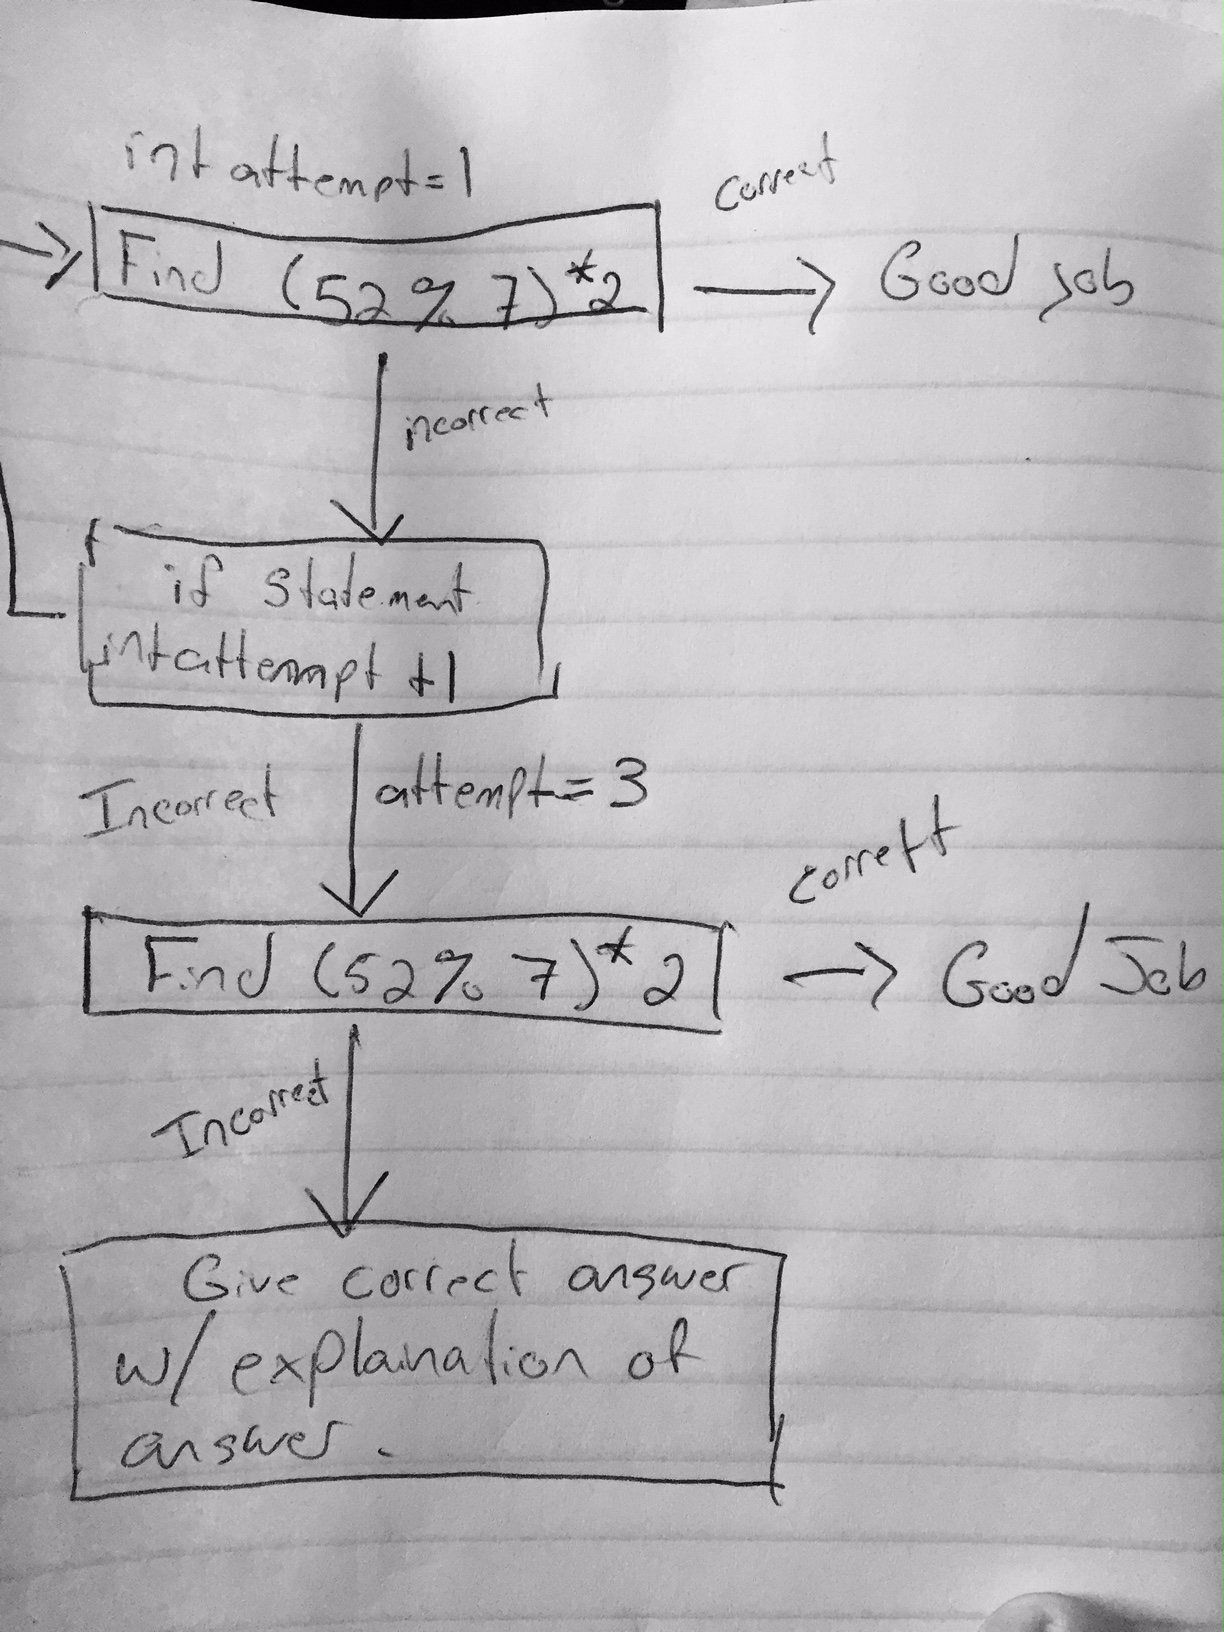 int attempt=1
correct
Find (52 % 7)*2
Good job
incorrect
if statement
int attempt +1
Incorrect
attempt=3
correct
Find (52% 7)* 2
Good Job
Incorrect
Give correct answer
w/ explaination of
answer.